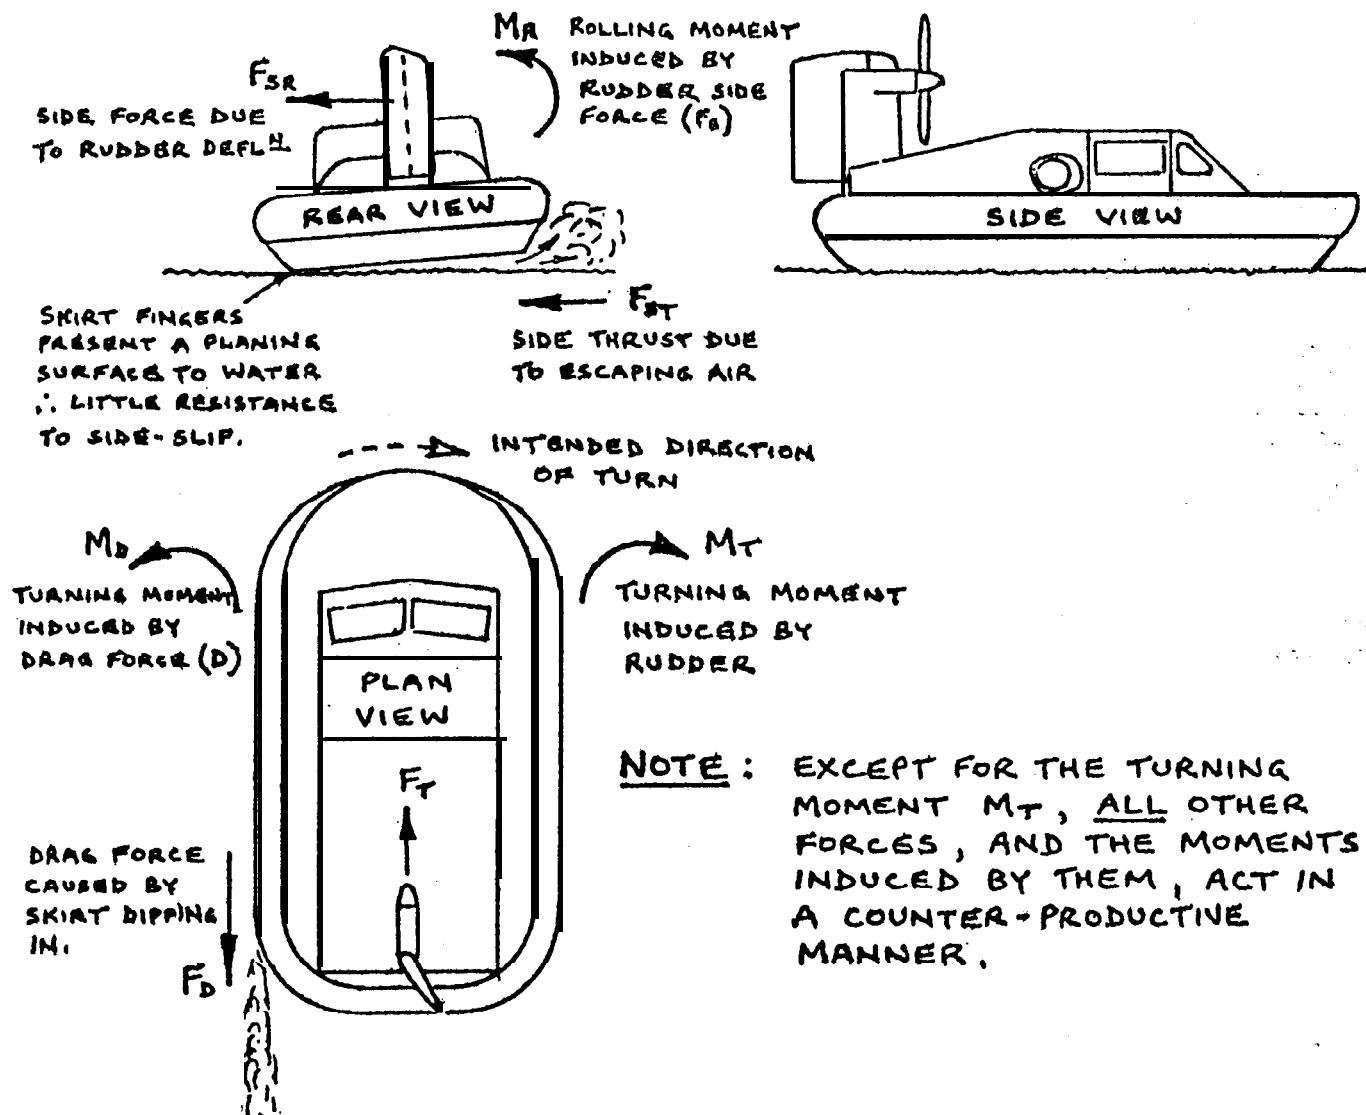 M_R ROLLING MOMENT
INDUCED BY
RUDDER SIDE
FORCE (F_B)
F_SR
SIDE FORCE DUE
TO RUDDER DEFL^N
REAR VIEW
SIDE VIEW
SKIRT FINGERS
PRESENT A PLANING
SURFACE TO WATER
∴ LITTLE RESISTANCE
TO SIDE-SLIP.
F_ST
SIDE THRUST DUE
TO ESCAPING AIR
INTENDED DIRECTION
OF TURN
M_D
TURNING MOMENT
INDUCED BY
DRAG FORCE (D)
M_T
TURNING MOMENT
INDUCED BY
RUDDER
PLAN
VIEW
F_T
DRAG FORCE
CAUSED BY
SKIRT DIPPING
IN.
F_D
NOTE : EXCEPT FOR THE TURNING
MOMENT M_T, ALL OTHER
FORCES, AND THE MOMENTS
INDUCED BY THEM, ACT IN
A COUNTER-PRODUCTIVE
MANNER.